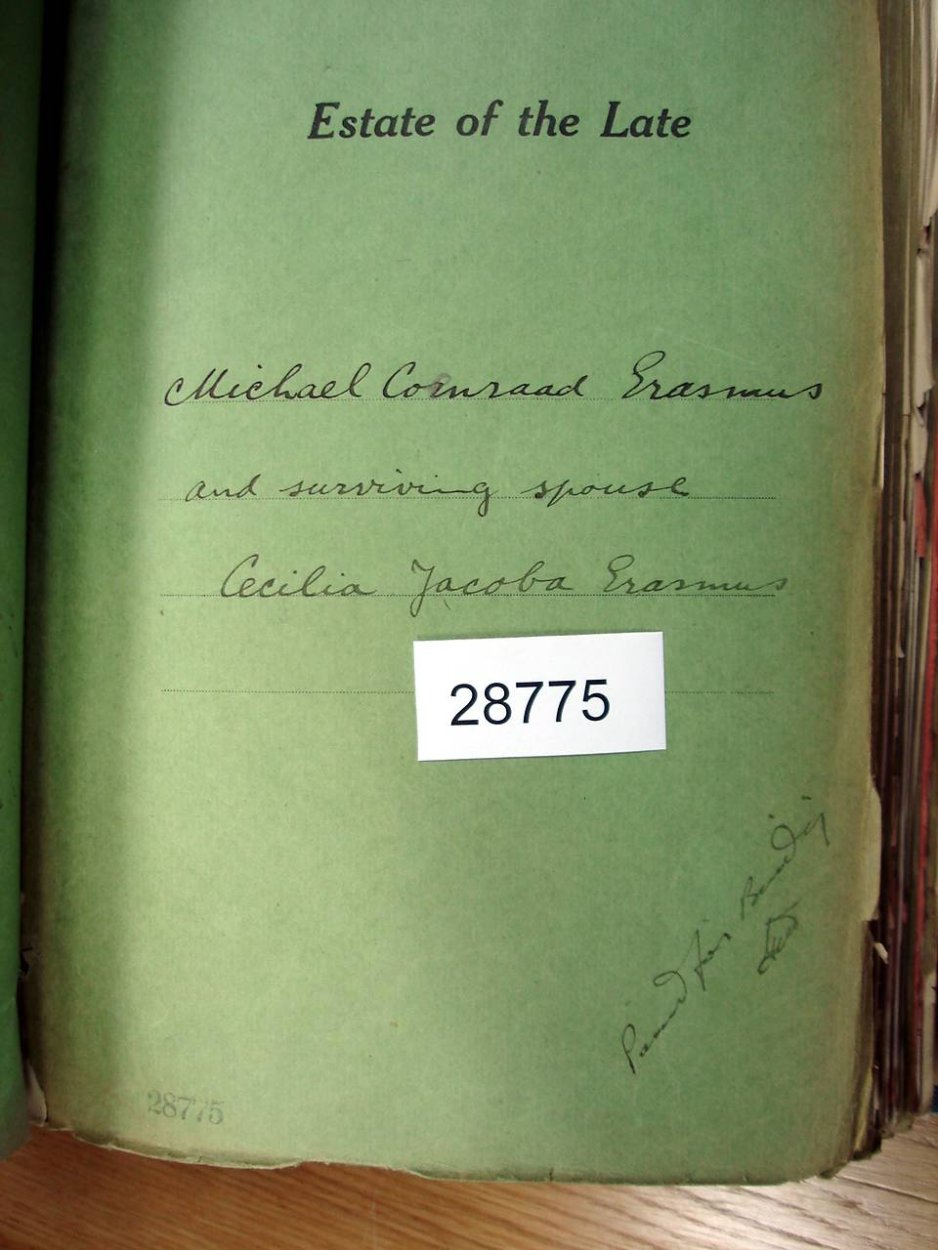 Estate of the Late
Michael Conraad Erasmus
and surviving spouse
Cecilia Jacoba Erasmus
28775
Passed for Binding
28775